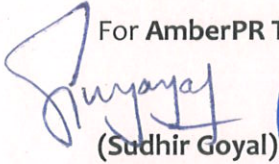 For AmberPR T
(Sudhir Goyal)